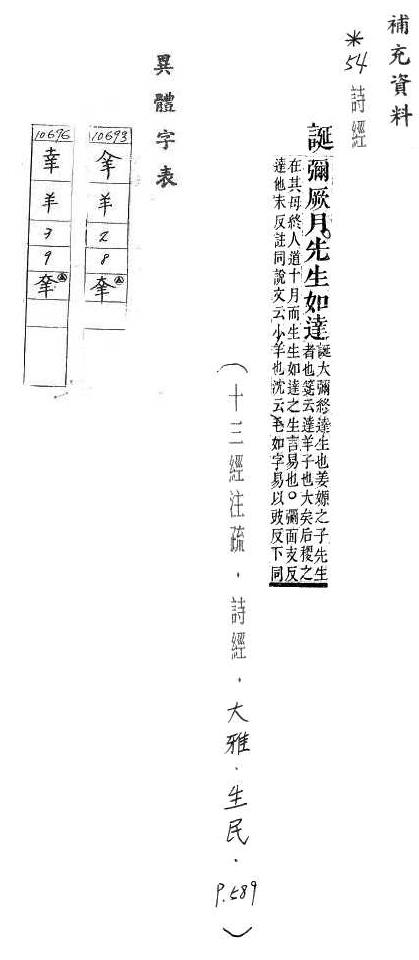 補充資料
＊54 詩經
誕彌厥月。先生如達
誕大彌終達生也姜嫄之子先生
者也箋云達羊子也大矣后稷之
在其母終人道十月而生生如達之生言易也。彌面支反
達他末反註同說文云小羊也沈云毛如字易以豉反下同
（十三經注疏．詩經．大雅．生民．P.589）
異體字表
10693
羊
2
8
羍
10696
羊
3
9
羍